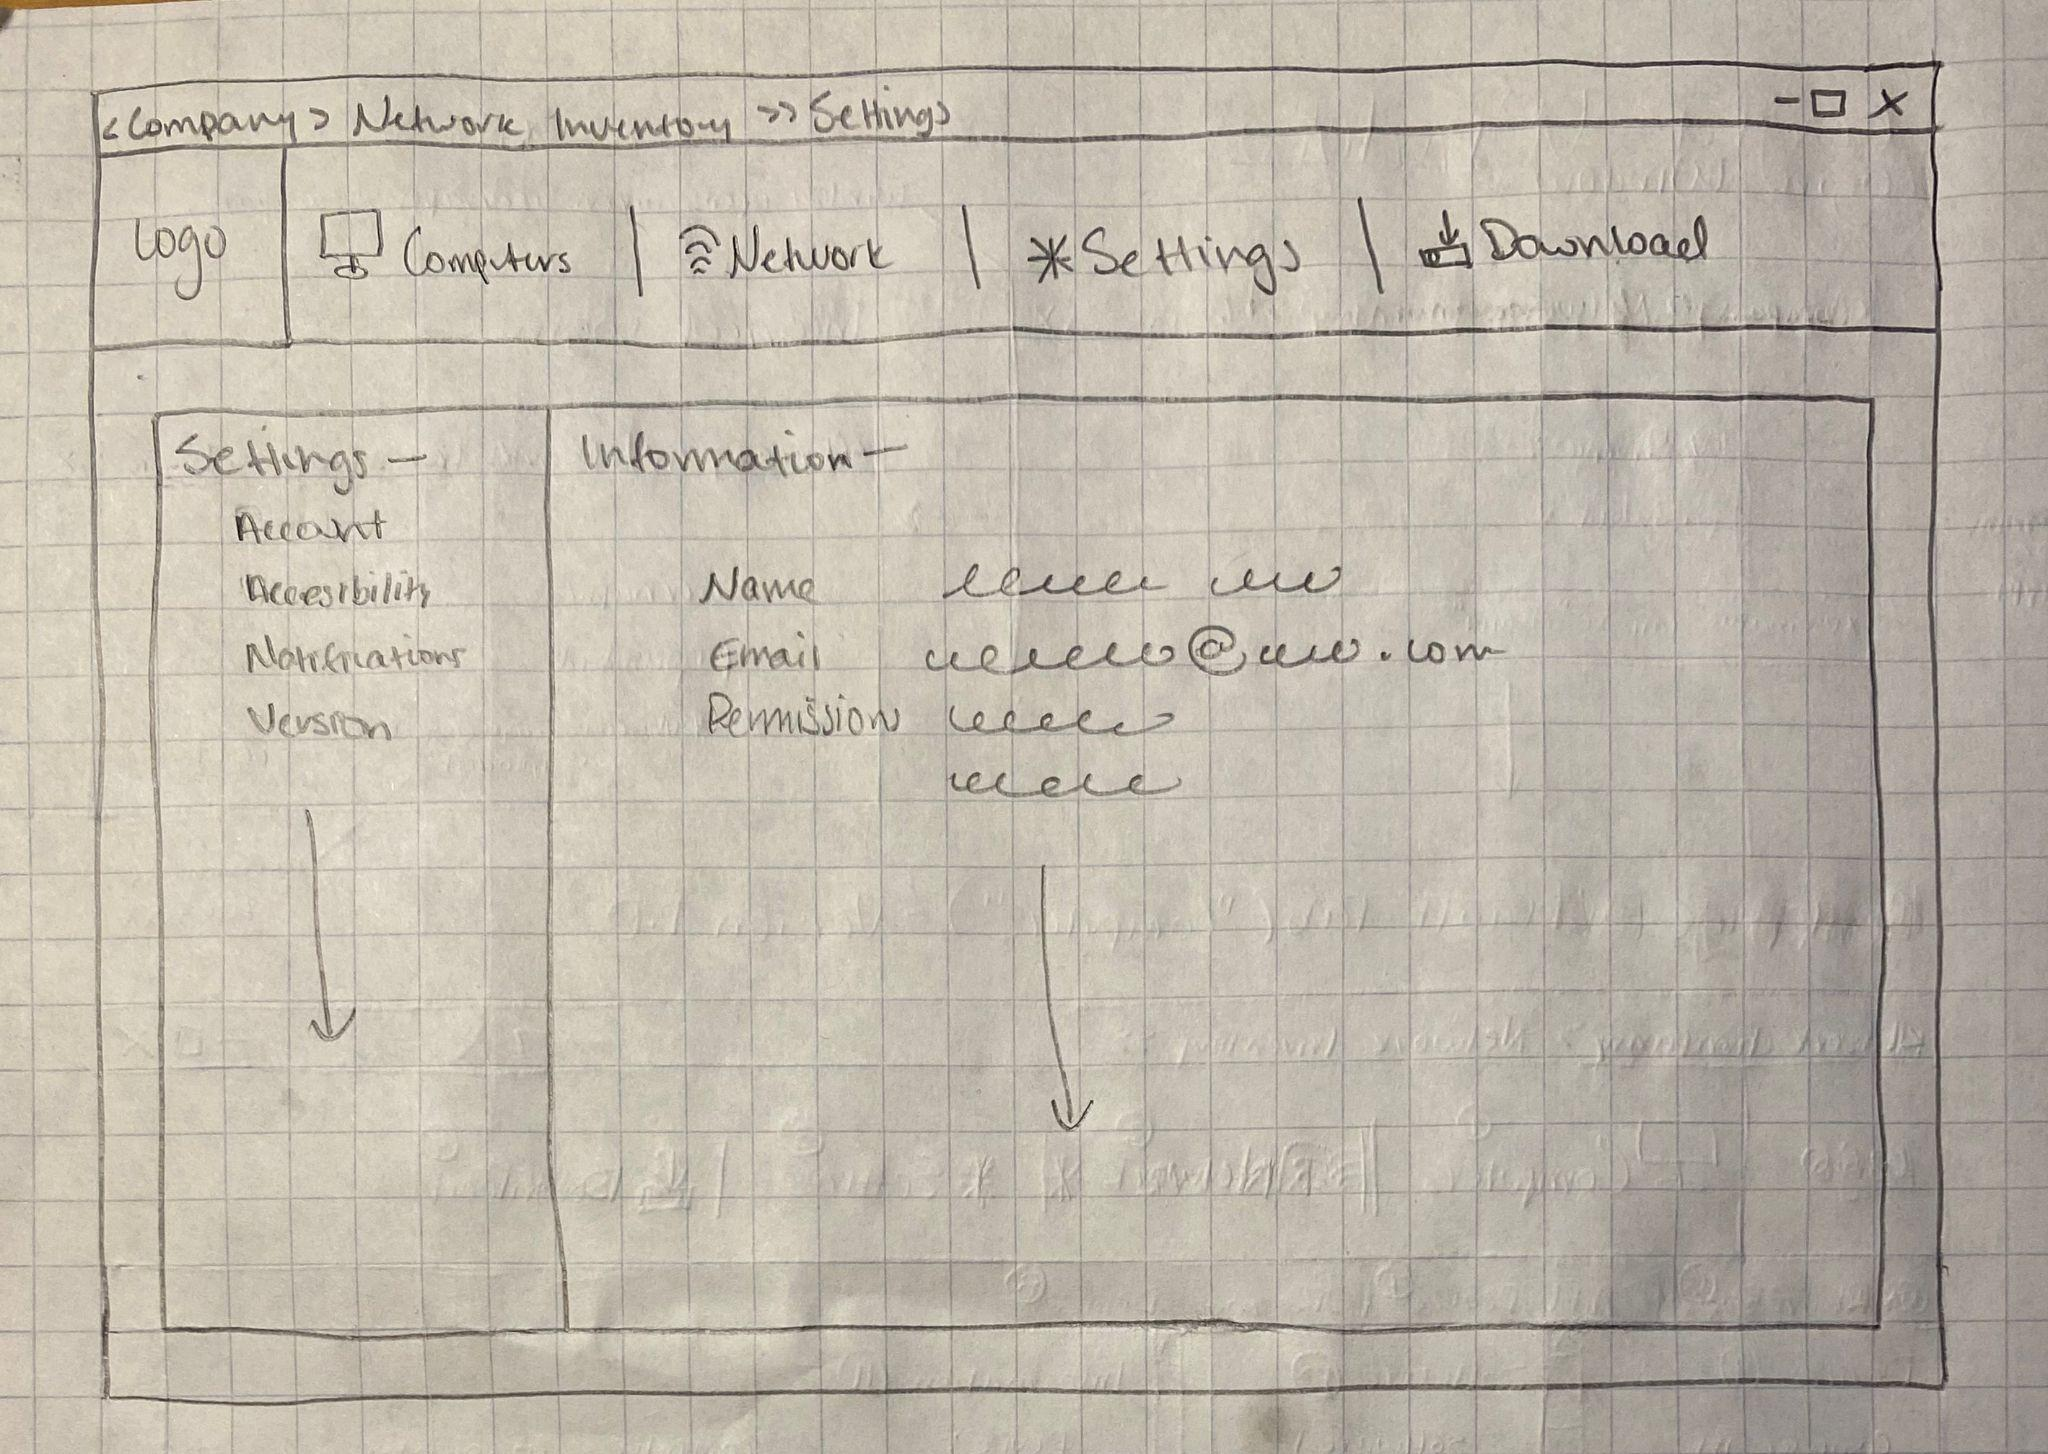 <Company> Network Inventory >> Settings - □ X
Logo
Computers | Network | * Settings | Download
Settings -
Account
Accesibility
Notifications
Version
Information -
Name
Email @ .com
Permission